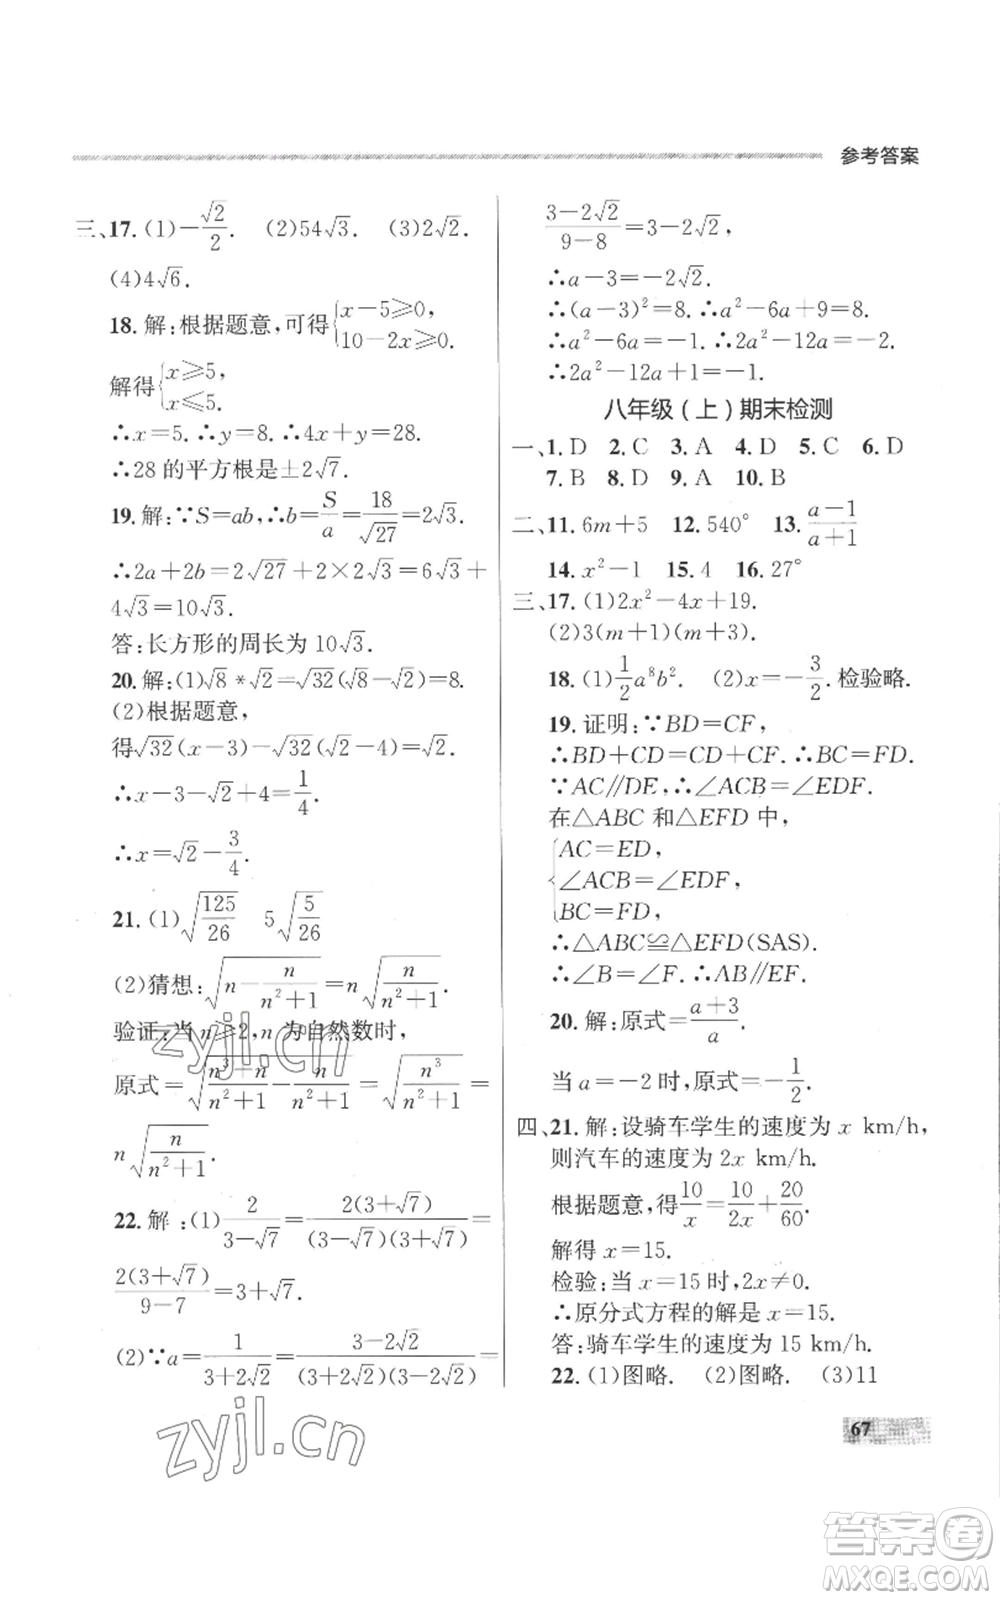 参考答案
三、17.(1)-√2/2. (2)54√3. (3)2√2.
(4)4√6.
18.解:根据题意,可得{x-5⩾0, 10-2x⩾0.
解得{x⩾5, x⩽5.
∴x=5.∴y=8.∴4x+y=28.
∴28的平方根是±2√7.
19.解:∵S=ab,∴b=S/a=18/√27=2√3.
∴2a+2b=2√27+2×2√3=6√3+
4√3=10√3.
答:长方形的周长为10√3.
20.解:(1)√8*√2=√32(√8-√2)=8.
(2)根据题意,
得√32(x-3)-√32(√2-4)=√2.
∴x-3-√2+4=1/4.
∴x=√2-3/4.
21.(1)√(125/26) 5√(5/26)
(2)猜想:√(n-n/(n²+1))=n√(n/(n²+1)).
验证:当n⩾2,n为自然数时,
原式=√((n³+n)/(n²+1)-n/(n²+1))=√(n³/(n²+1))=
n√(n/(n²+1)).
22.解:(1)2/(3-√7)=2(3+√7)/((3-√7)(3+√7))=
2(3+√7)/(9-7)=3+√7.
(2)∵a=1/(3+2√2)=(3-2√2)/((3+2√2)(3-2√2))=
(3-2√2)/(9-8)=3-2√2,
∴a-3=-2√2.
∴(a-3)²=8.∴a²-6a+9=8.
∴a²-6a=-1.∴2a²-12a=-2.
∴2a²-12a+1=-1.
八年级(上)期末检测
一、1.D 2.C 3.A 4.D 5.C 6.D
7.B 8.D 9.A 10.B
二、11.6m+5 12.540° 13.(a-1)/(a+1)
14.x²-1 15.4 16.27°
三、17.(1)2x²-4x+19.
(2)3(m+1)(m+3).
18.(1)1/2a⁸b². (2)x=-3/2.检验略.
19.证明:∵BD=CF,
∴BD+CD=CD+CF.∴BC=FD.
∵AC∥DE,∴∠ACB=∠EDF.
在△ABC和△EFD中,
AC=ED,
∠ACB=∠EDF,
BC=FD,
∴△ABC≌△EFD(SAS).
∴∠B=∠F.∴AB∥EF.
20.解:原式=(a+3)/a.
当a=-2时,原式=-1/2.
四、21.解:设骑车学生的速度为x km/h,
则汽车的速度为2x km/h.
根据题意,得10/x=10/2x+20/60.
解得x=15.
检验:当x=15时,2x≠0.
∴原分式方程的解是x=15.
答:骑车学生的速度为15 km/h.
22.(1)图略. (2)图略. (3)11
67
zyjl.cn
zyjl.cn
答案卷
MXQE.COM